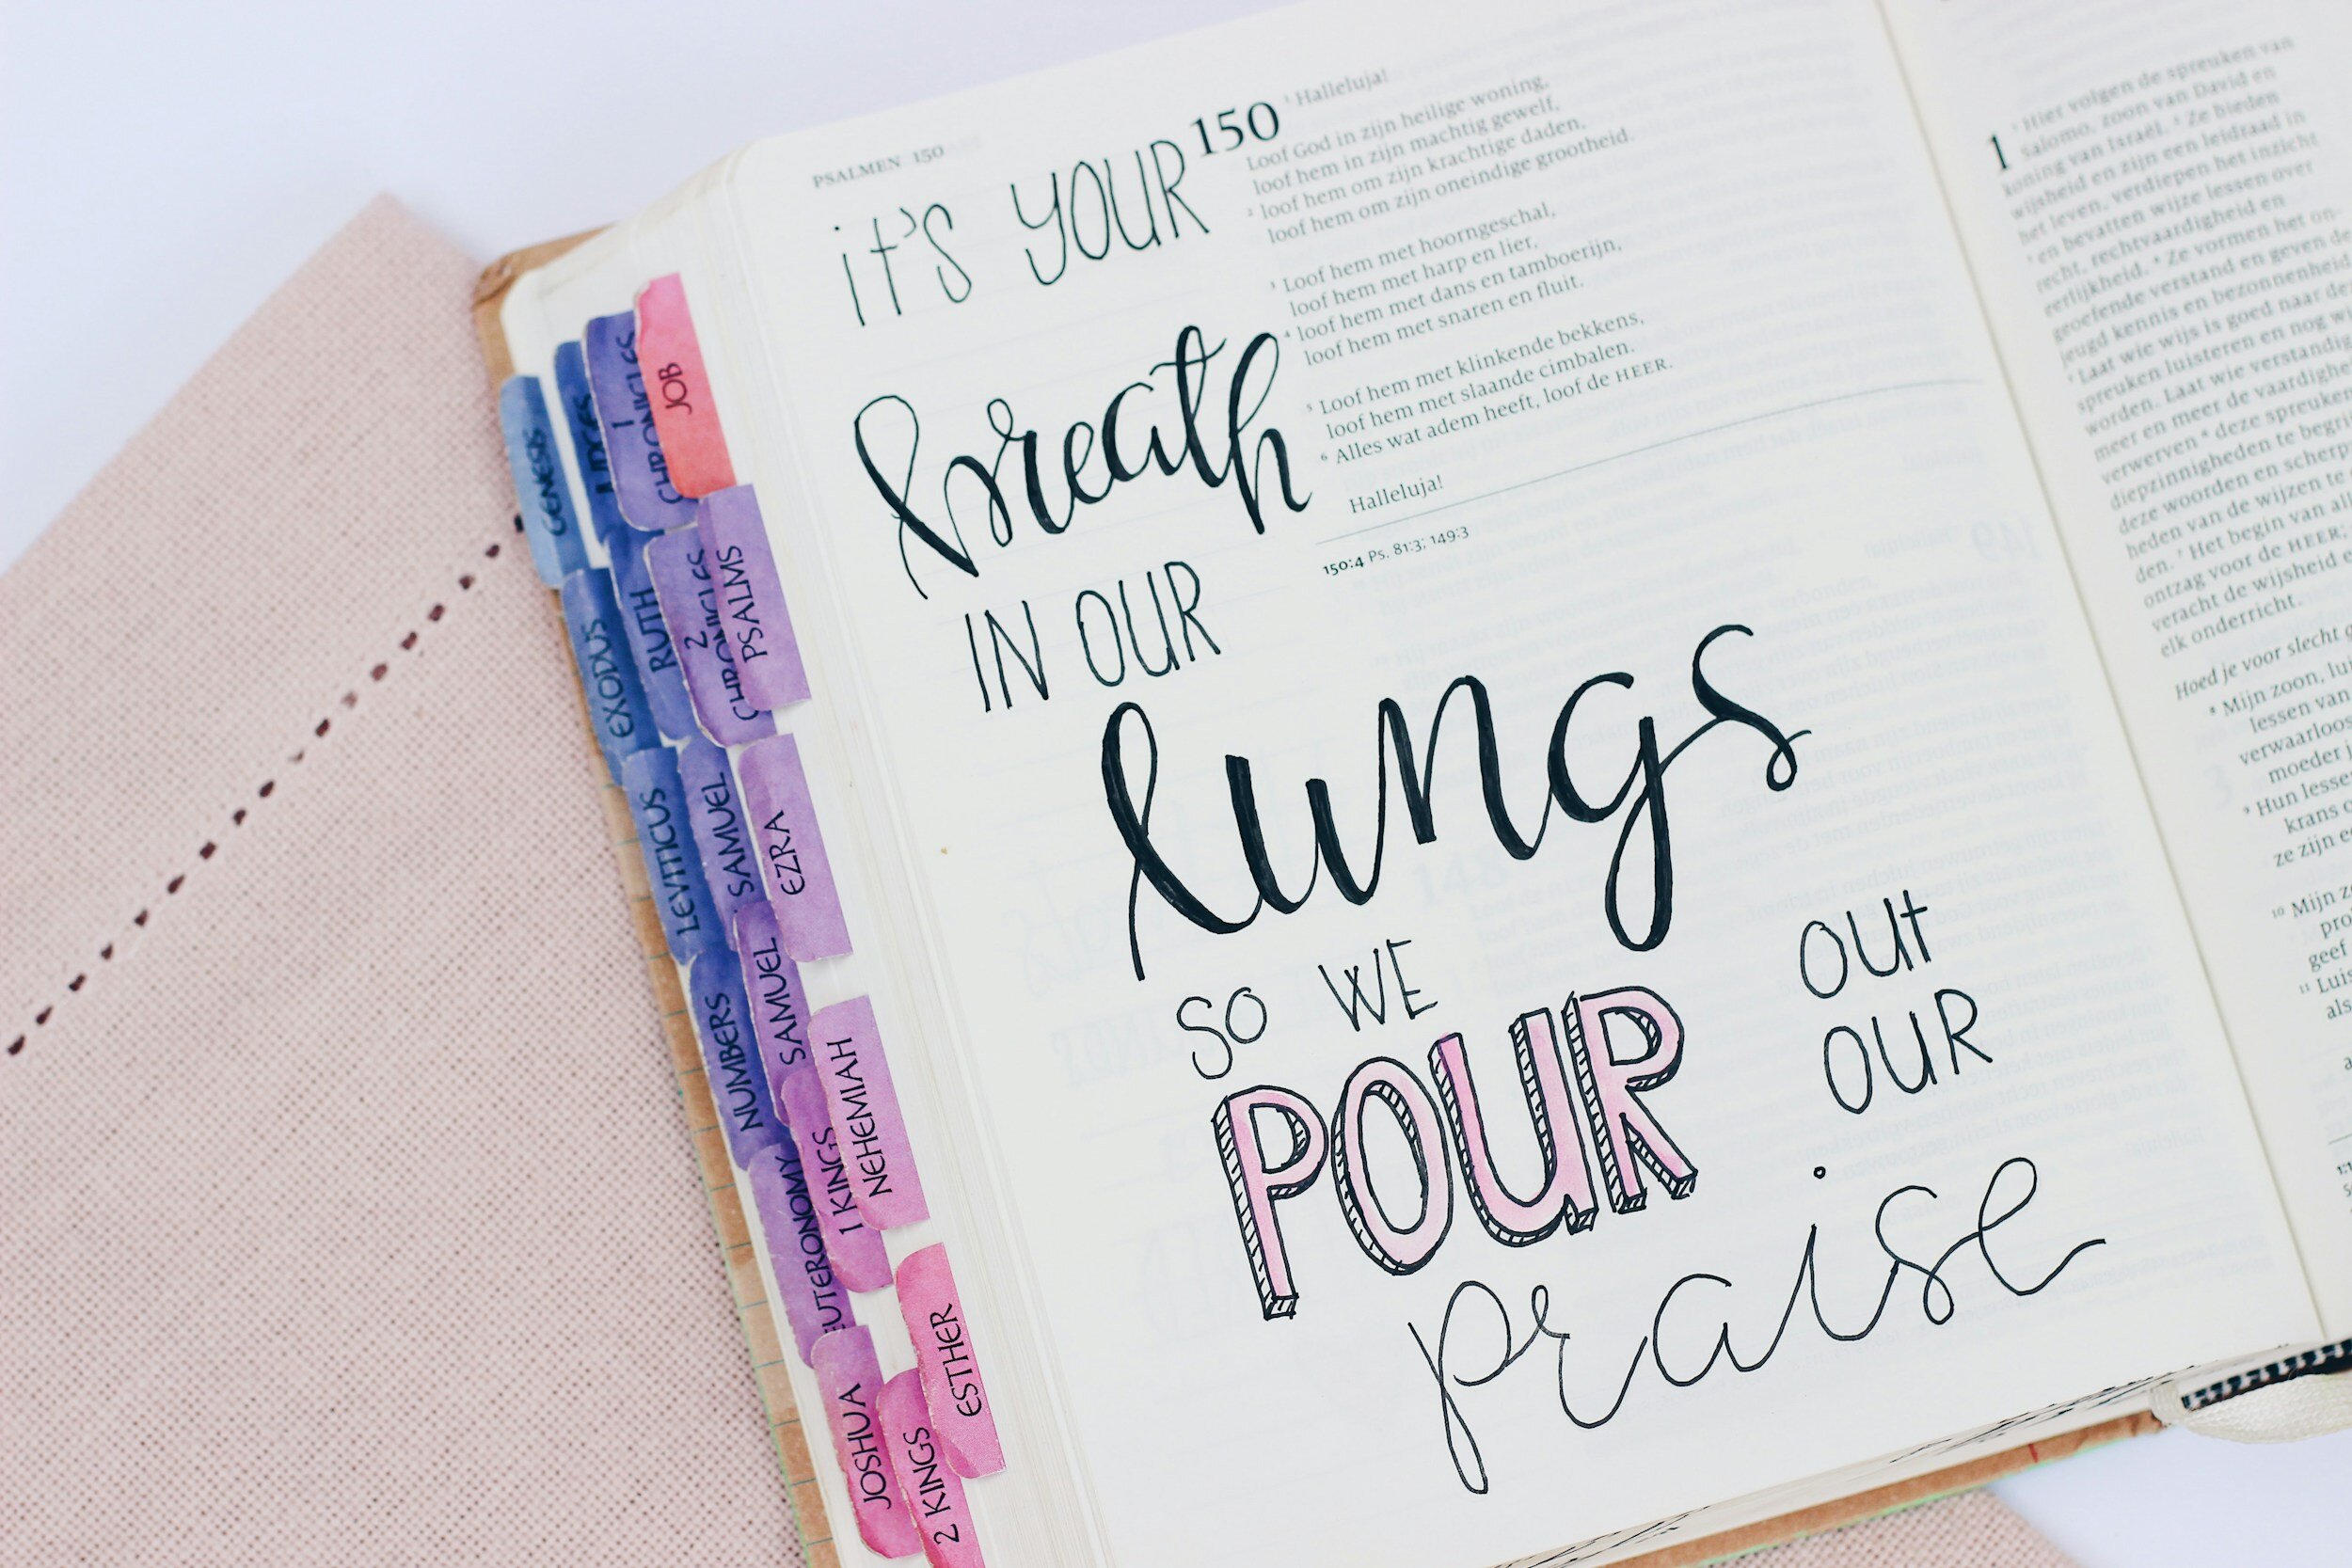 GENESIS
EXODUS
LEVITICUS
NUMBERS
JOSHUA
JUDGES
RUTH
SAMUEL
SAMUEL
1 KINGS
2 KINGS
1
CHRONICLES
2
CHRONICLES
EZRA
NEHEMIAH
ESTHER
JOB
PSALMS
PSALMEN 150
it's YOUR
breath
IN OUR
lungs
SO WE
POUR
OUt
OUR
praise
150
¹ Halleluja!
Loof God in zijn heilige woning,
loof hem in zijn machtig gewelf,
² loof hem om zijn krachtige daden,
loof hem om zijn oneindige grootheid.
³ Loof hem met hoorngeschal,
loof hem met harp en lier,
⁴ loof hem met dans en tamboerijn,
loof hem met snaren en fluit.
⁵ Loof hem met klinkende bekkens,
loof hem met slaande cimbalen.
⁶ Alles wat adem heeft, loof de HEER.
Halleluja!
150:4 Ps. 81:3; 149:3
1
¹ Hier volgen de spreuken van
Salomo, zoon van David en
koning van Israël. ² Ze bieden
wijsheid en zijn een leidraad in
het leven, verdiepen het inzicht
³ en bevatten wijze lessen over
recht, rechtvaardigheid en
eerlijkheid. ⁴ Ze vormen het on-
geoefende verstand en geven de
jeugd kennis en bezonnenheid.
⁵ Laat wie wijs is goed naar deze
spreuken luisteren en nog w
worden. Laat wie verstandig
meer en meer de vaardighe
verwerven ⁶ deze spreuken
diepzinnigheden te begri
deze woorden en scherp
heden van de wijzen te
den. ⁷ Het begin van al
ontzag voor de HEER,
veracht de wijsheid e
elk onderricht.
Hoed je voor slecht g
⁸ Mijn zoon, lui
lessen van
verwaarloos
moeder j
⁹ Hun lesse
krans
ze zijn e
¹⁰ Mijn z
geef
¹¹ Luis
als